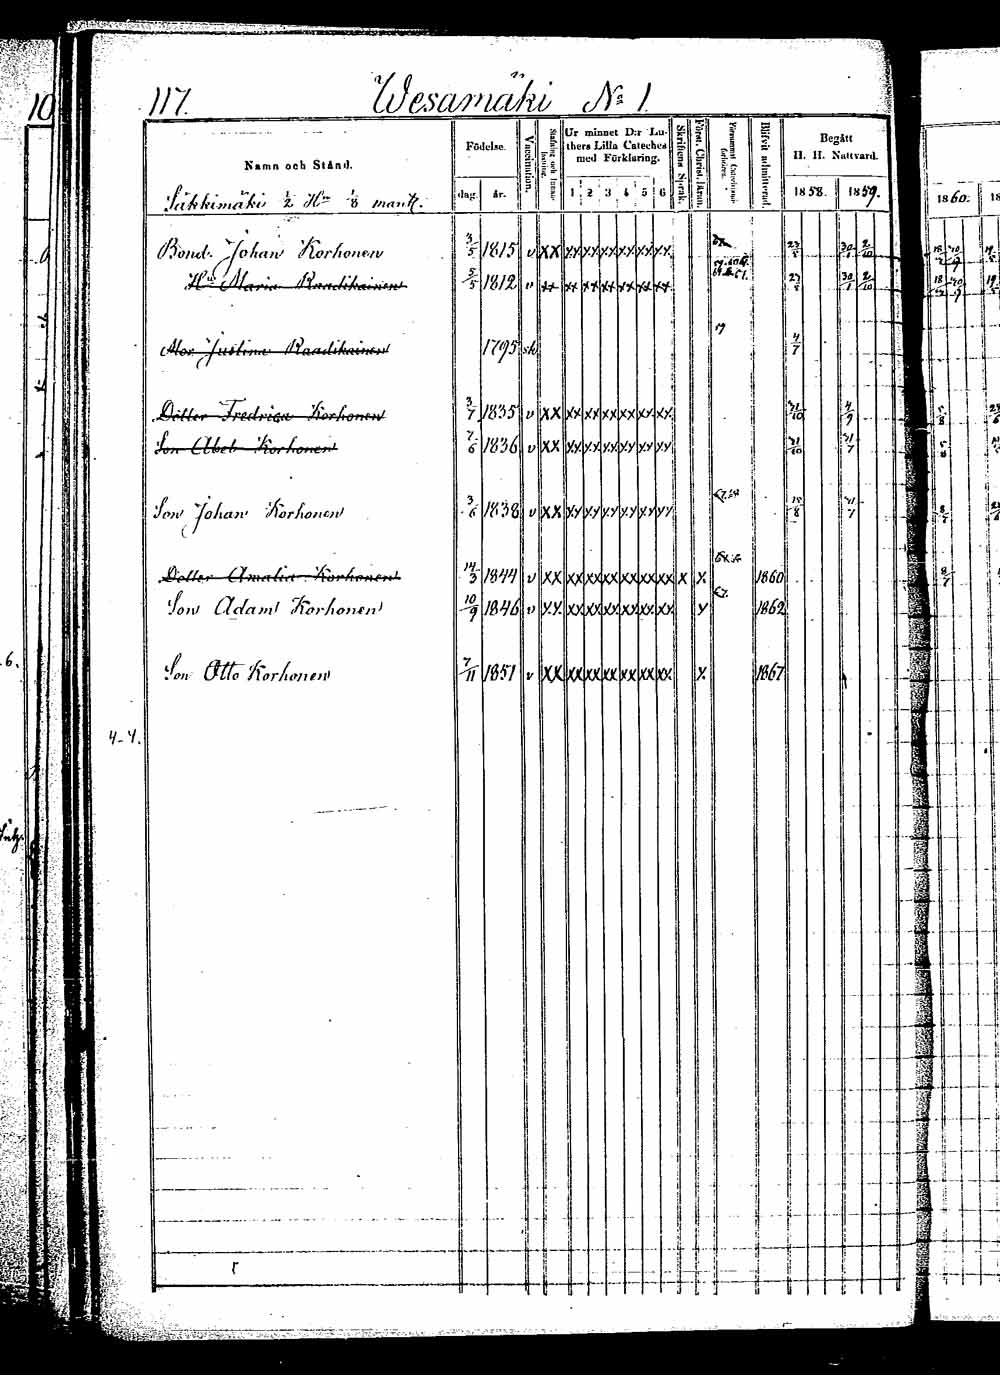 10
117. Wesamäki No 1.
Namn och Stånd.
Födelse.
dag. år.
Vaccination.
Ur minnet D:r Luthers Lilla Cateches med Förklaring.
1 2 3 4 5 6
Skriftens Språk.
Först. Christ. läran.
Blifvit admitterad.
Begått H. H. Nattvard.
1858. 1859.
1860.
Säkkimäki ½ Hn ⅛ mantl.
Bond. Johan Korhonen 3/5 1815 v XX XX XX XX XX XX XX 30/1 2/10
Hu Maria Raadikainen 5/5 1812 v XX XX XX XX XX XX XX 30/1 2/10
Mor Justina Raadikainen 1795 4/7
Dotter Fredrica Korhonen 3/7 1835 v XX XX XX XX XX XX XX 21/10 4/9
Son Abel Korhonen 7/6 1836 v XX XX XX XX XX XX XX 21/10 21/7
Son Johan Korhonen 3/6 1838 v XX XX XX XX XX XX XX 15/8 21/7
Dotter Amalia Korhonen 14/3 1844 v XX XX XX XX XX XX XX X X 1860 8/7
Son Adam Korhonen 10/9 1846 v XX XX XX XX XX XX XX X 1862
Son Otto Korhonen 7/11 1851 v XX XX XX XX XX XX XX X 1867
6.
4-4.